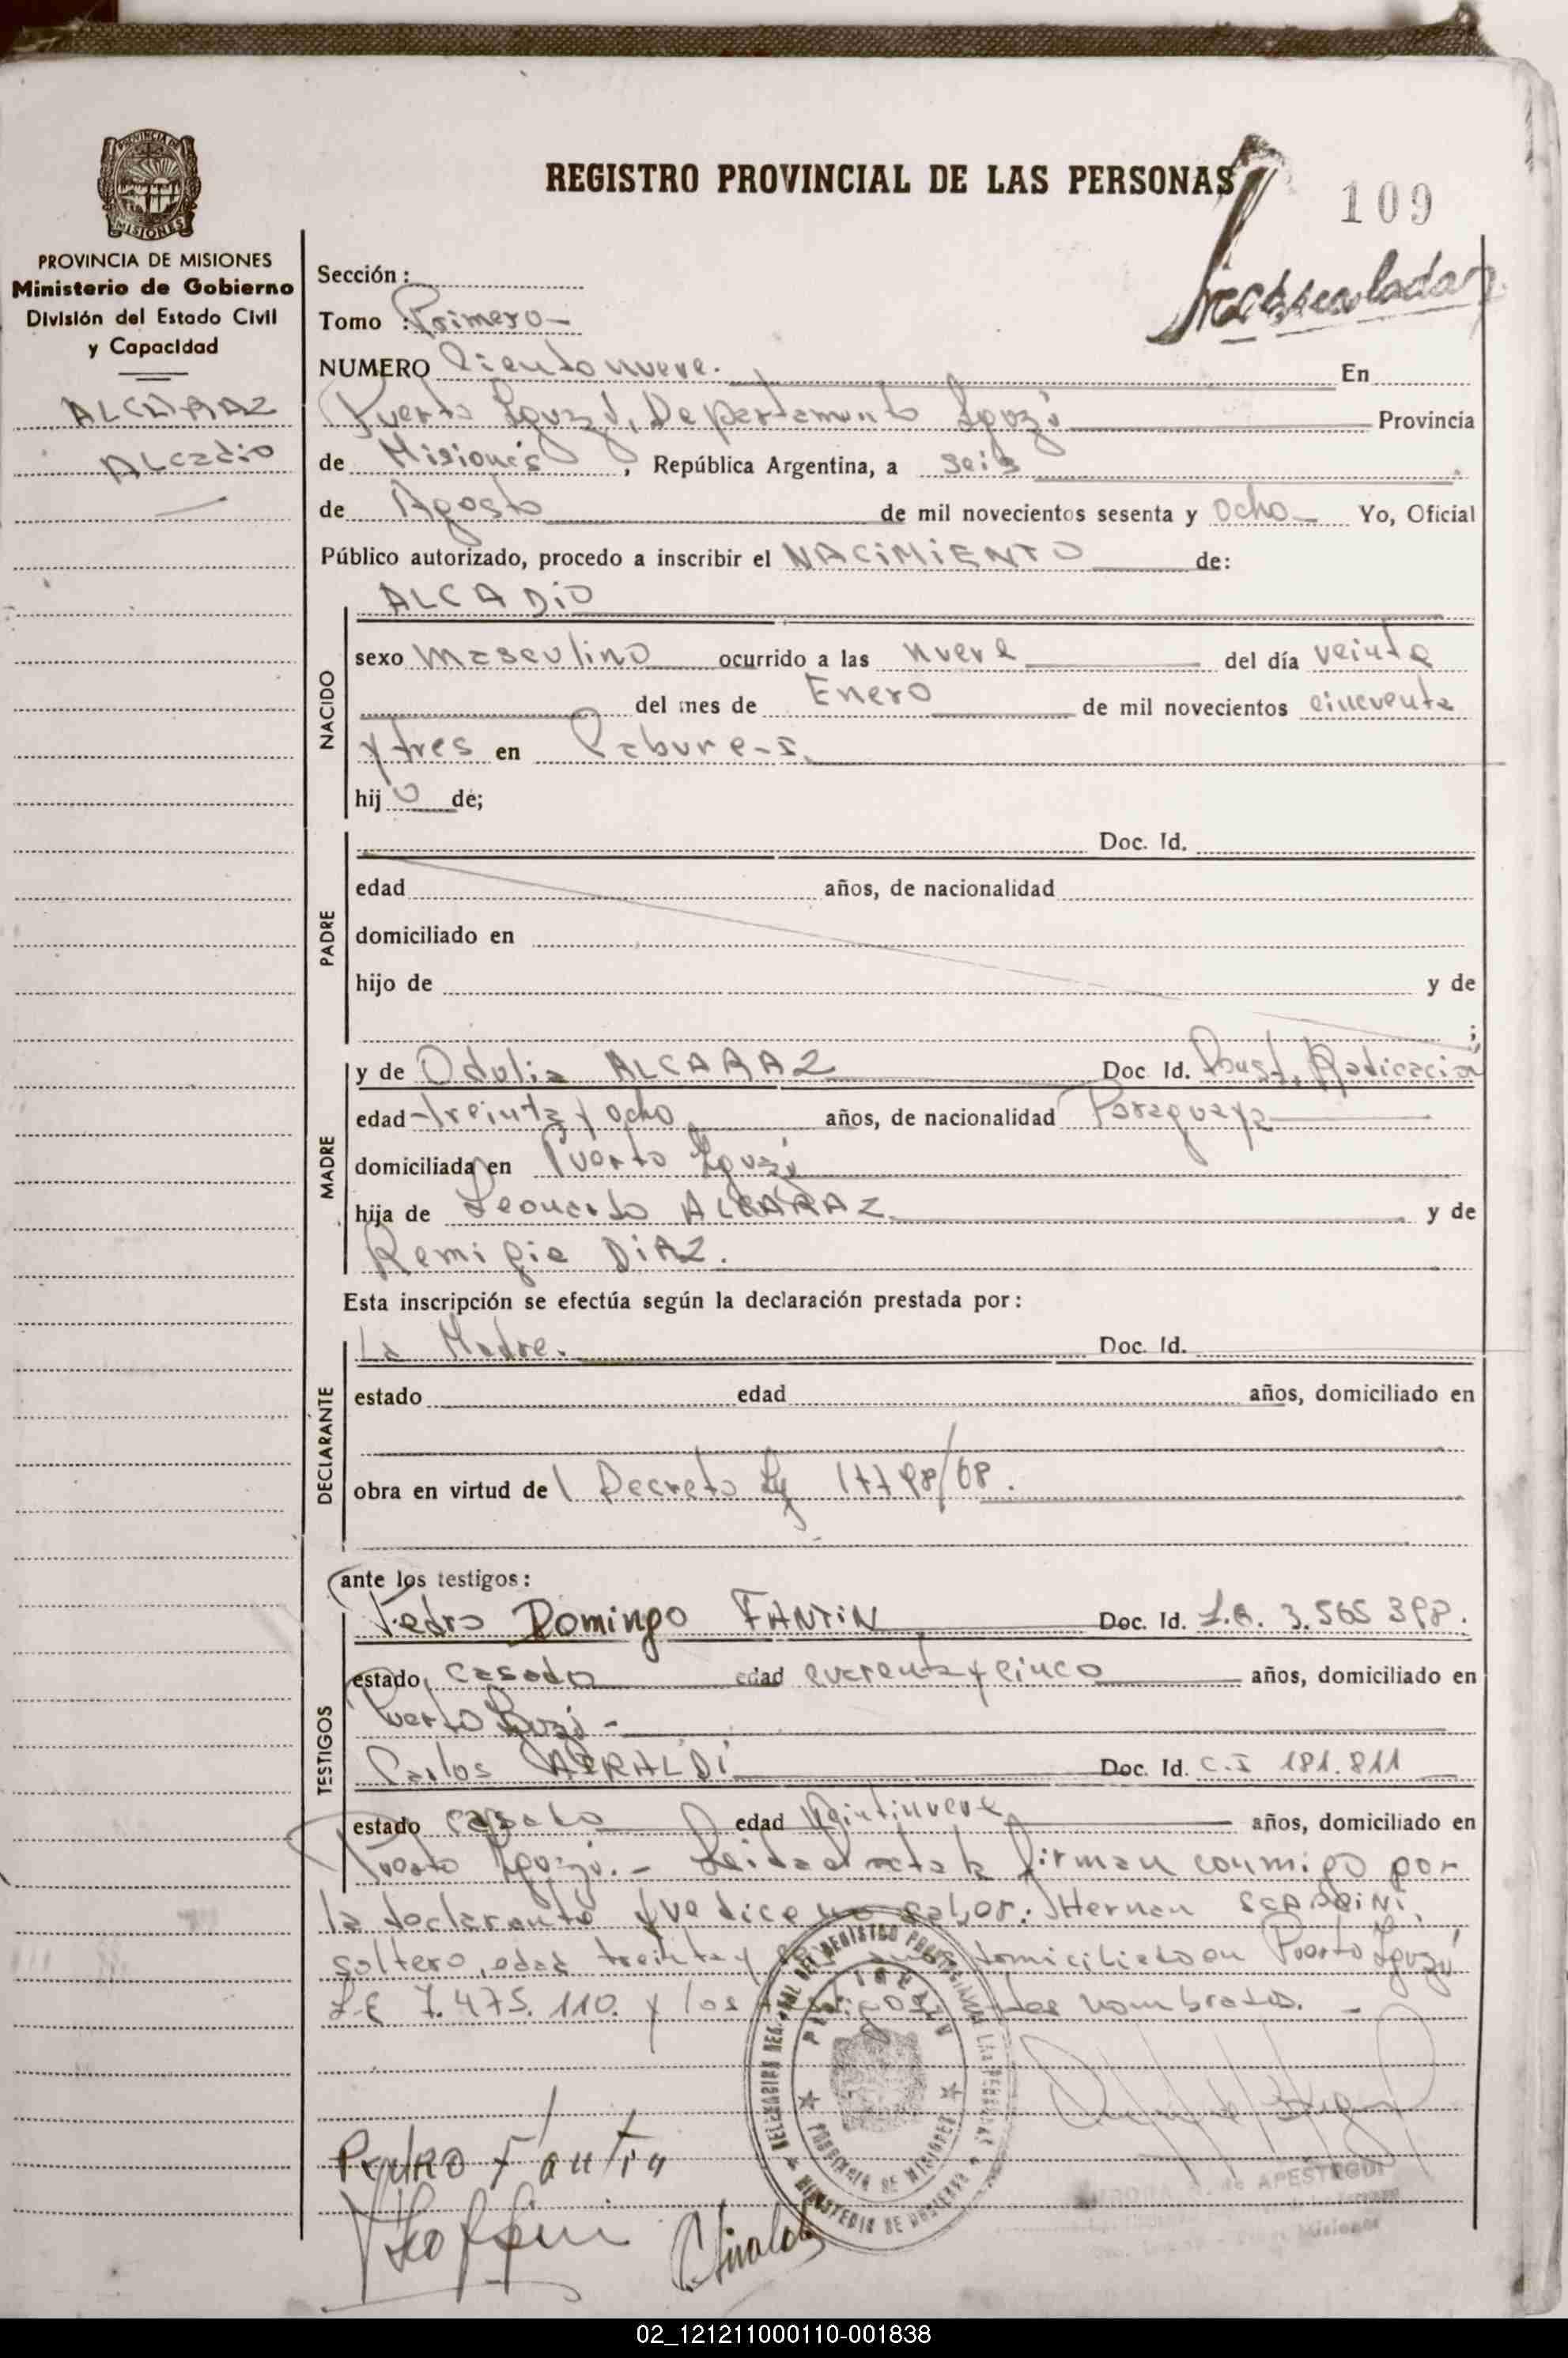 REGISTRO PROVINCIAL DE LAS PERSONAS
109
PROVINCIA DE MISIONES
Ministerio de Gobierno
División del Estado Civil
y Capacidad
ALCARAZ
Alcadio
Sección :
Tomo : Primero
NUMERO Ciento nueve. En
Puerto Iguazú, Departamento Iguazú Provincia
de Misiones , República Argentina, a seis
de Agosto de mil novecientos sesenta y ocho Yo, Oficial
Público autorizado, procedo a inscribir el NACIMIENTO de:
NACIDO
ALCADIO
sexo masculino ocurrido a las nueve del día veinte
del mes de Enero de mil novecientos cincuenta
y tres en Cabure-í.
hij o de;
PADRE
Doc. Id.
edad años, de nacionalidad
domiciliado en
hijo de y de
;
MADRE
y de Odulia ALCARAZ Doc Id. Radicación
edad treinta y ocho años, de nacionalidad Paraguaya
domiciliada en Puerto Iguazú
hija de Leonardo ALCARAZ y de
Remigia DIAZ.
Esta inscripción se efectúa según la declaración prestada por :
DECLARANTE
La Madre. Doc. Id.
estado edad años, domiciliado en
obra en virtud de Decreto Ley
ante los testigos :
TESTIGOS
Pedro Domingo FANTIN Doc. Id. 3.565.398.
estado casado edad cuarenta y cinco años, domiciliado en
Puerto Iguazú -
Carlos Doc. Id. C.I 181.811
estado casado edad veintinueve años, domiciliado en
Puerto Iguazú. - Leida el acta la firman conmigo por
la declarante que dice no saber: Hernan
soltero, edad treinta y domiciliado en Puerto Iguazú
L.E 7.475.110. y los testigos nombrados. -
PROVINCIA DE MISIONES
MINISTERIO DE GOBIERNO
Pedro Fantin
de APESTEGUI
Misiones
02_121211000110-001838